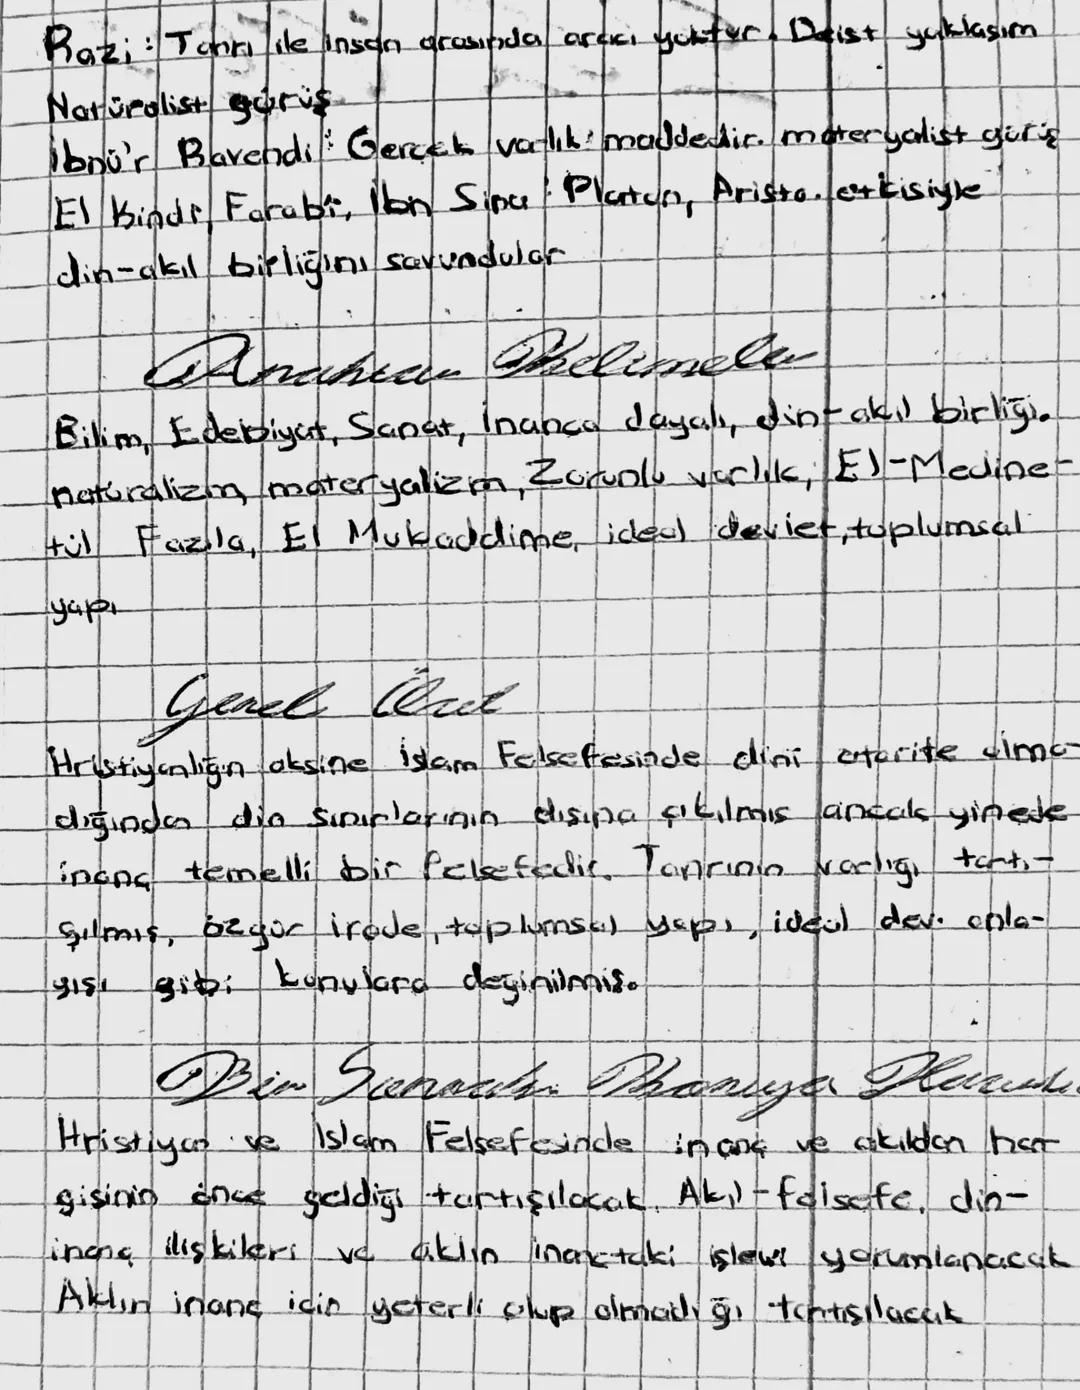 Razi : Tanrı ile insan arasında aracı yoktur. Deist yaklaşım
Natüralist görüş
İbnü'r Ravendi : Gerçek varlık maddedir. materyalist görüş
El Kindi, Farabî, İbn Sina : Platon, Aristo. etkisiyle
din-akıl birliğini savundular
Anahtar Kelimeler
Bilim, Edebiyat, Sanat, İnanca dayalı, din-akıl birliği.
natüralizm, materyalizm, Zorunlu varlık, El-Medine-
tül Fazıla, El Mukaddime, ideal devlet, toplumsal
yapı
Genel Özet
Hristiyanlığın aksine İslam Felsefesinde dini otorite olma-
dığından din sınırlarının dışına çıkılmış ancak yinede
inanç temelli bir felsefedir. Tanrının varlığı tartı-
şılmış, özgür irade, toplumsal yapı, ideal dev. anla-
yışı gibi konulara değinilmiş.
Bir Sonraki Konuya Hazırlık
Hristiyan ve İslam Felsefesinde inanç ve akıldan han-
gisinin önce geldiği tartışılacak. Akıl-felsefe, din-
inanç ilişkileri ve aklın inançtaki işlevi yorumlanacak
Aklın inanç için yeterli olup olmadığı tartışılacak